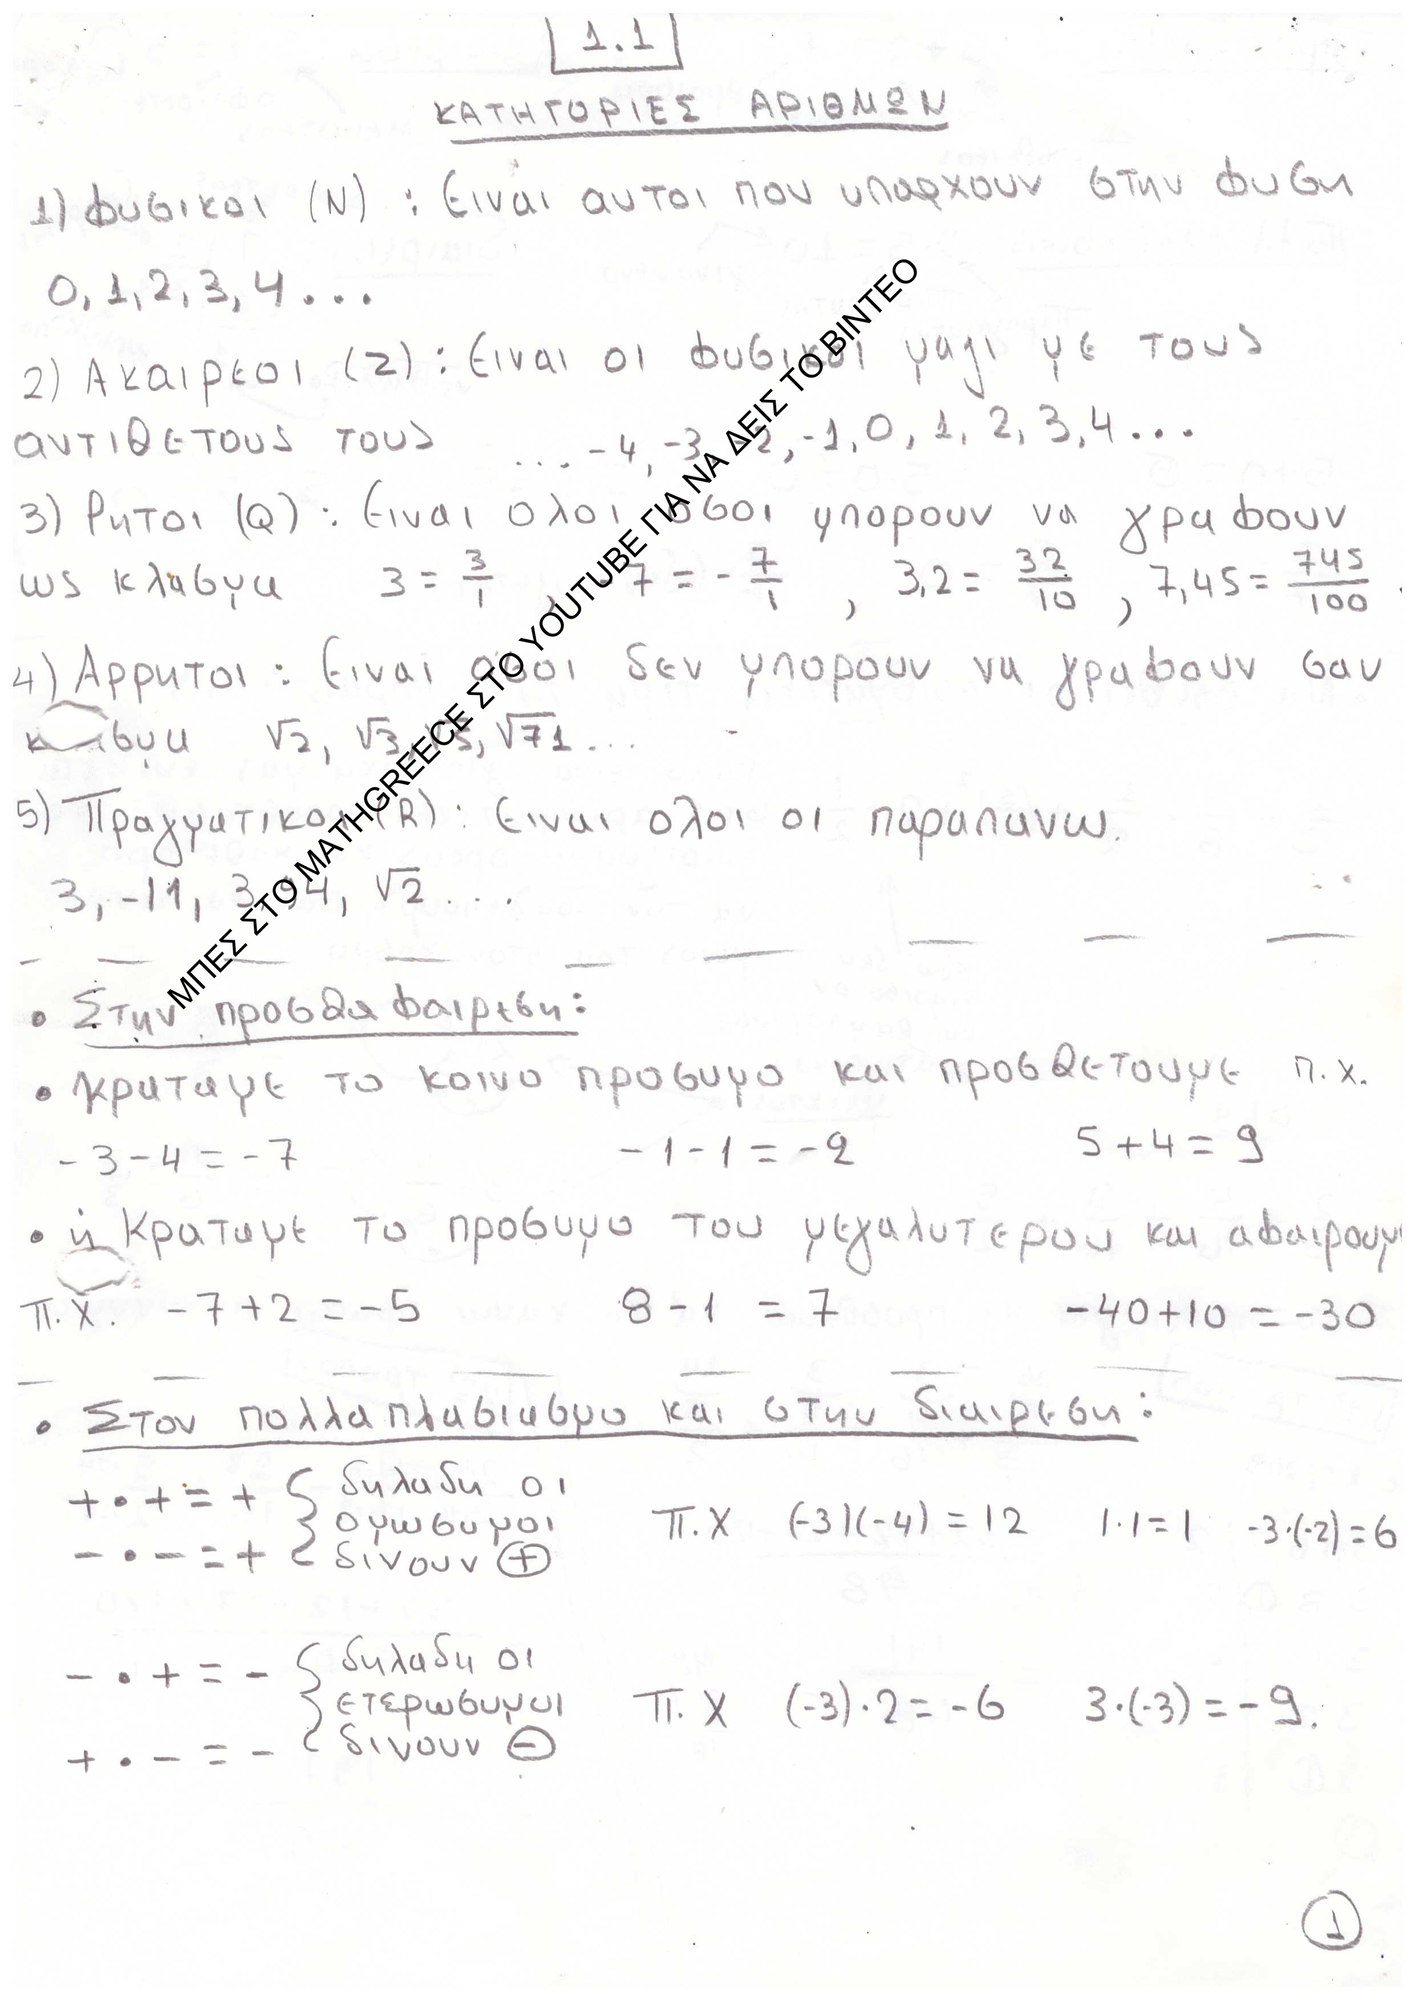 1.1
ΚΑΤΗΓΟΡΙΕΣ ΑΡΙΘΜΩΝ
1) Φυσικοι (Ν) : Ειναι αυτοι που υπαρχουν στην φυση
0, 1, 2, 3, 4 ...
2) Ακαιρεοι (Ζ) : Ειναι οι φυσικοι μαζι με τους
αντιθετους τους ... -4, -3, -2, -1, 0, 1, 2, 3, 4 ...
3) Ρητοι (Q) : Ειναι ολοι οσοι μπορουν να γραφουν
ως κλασμα 3 = 3/1 , -7 = - 7/1 , 3,2 = 32/10 , 7,45 = 745/100
4) Αρρητοι : Ειναι οσοι δεν μπορουν να γραφουν σαν
κλασμα √2, √3, √5, √71 ...
5) Πραγματικοι (R) : Ειναι ολοι οι παραπανω.
3, -11, 3,14, √2 ...
ΜΠΕΣ ΣΤΟ MATHGREECE ΣΤΟ YOUTUBE ΓΙΑ ΝΑ ΔΕΙΣ ΤΟ ΒΙΝΤΕΟ
• Στην προσθαφαιρεση:
• κραταμε το κοινο προσυμο και προσθετουμε π.χ.
-3-4=-7 -1-1=-2 5+4=9
• ή Κραταμε το προσυμο του μεγαλυτερου και αφαιρουμε
π.χ. -7+2=-5 8-1=7 -40+10=-30
• Στον πολλαπλασιασμο και στην διαιρεση:
+ • + = + δηλαδη οι
ομωσυμοι
- • - = + δινουν +
π.χ (-3)(-4)=12 1·1=1 -3·(-2)=6
- • + = - δηλαδη οι
ετερωσυμοι
+ • - = - δινουν -
π.χ (-3)·2=-6 3·(-3)=-9.
1